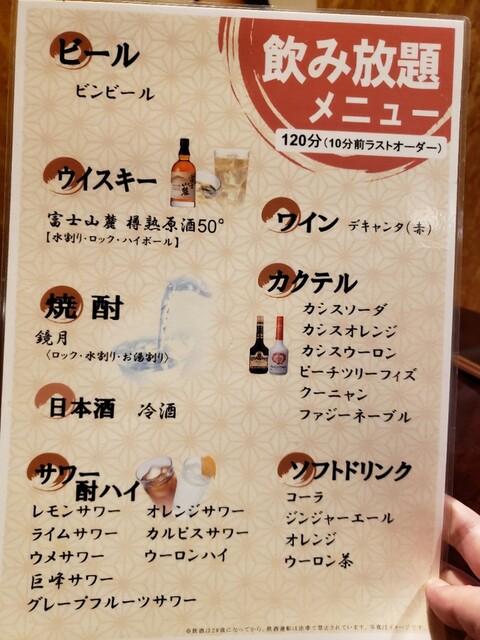 飲み放題
メニュー
120分(10分前ラストオーダー)
ビール
ビンビール
ウイスキー
富士山麓 樽熟原酒50°
【水割り・ロック・ハイボール】
焼酎
鏡月
〈ロック・水割り・お湯割り〉
日本酒 冷酒
サワー
酎ハイ
レモンサワー
ライムサワー
ウメサワー
巨峰サワー
グレープフルーツサワー
オレンジサワー
カルピスサワー
ウーロンハイ
ワイン デキャンタ(赤)
カクテル
カシスソーダ
カシスオレンジ
カシスウーロン
ピーチツリーフィズ
クーニャン
ファジーネーブル
ソフトドリンク
コーラ
ジンジャーエール
オレンジ
ウーロン茶
※飲酒は20歳になってから。飲酒運転は法律で禁止されています。写真はイメージです。